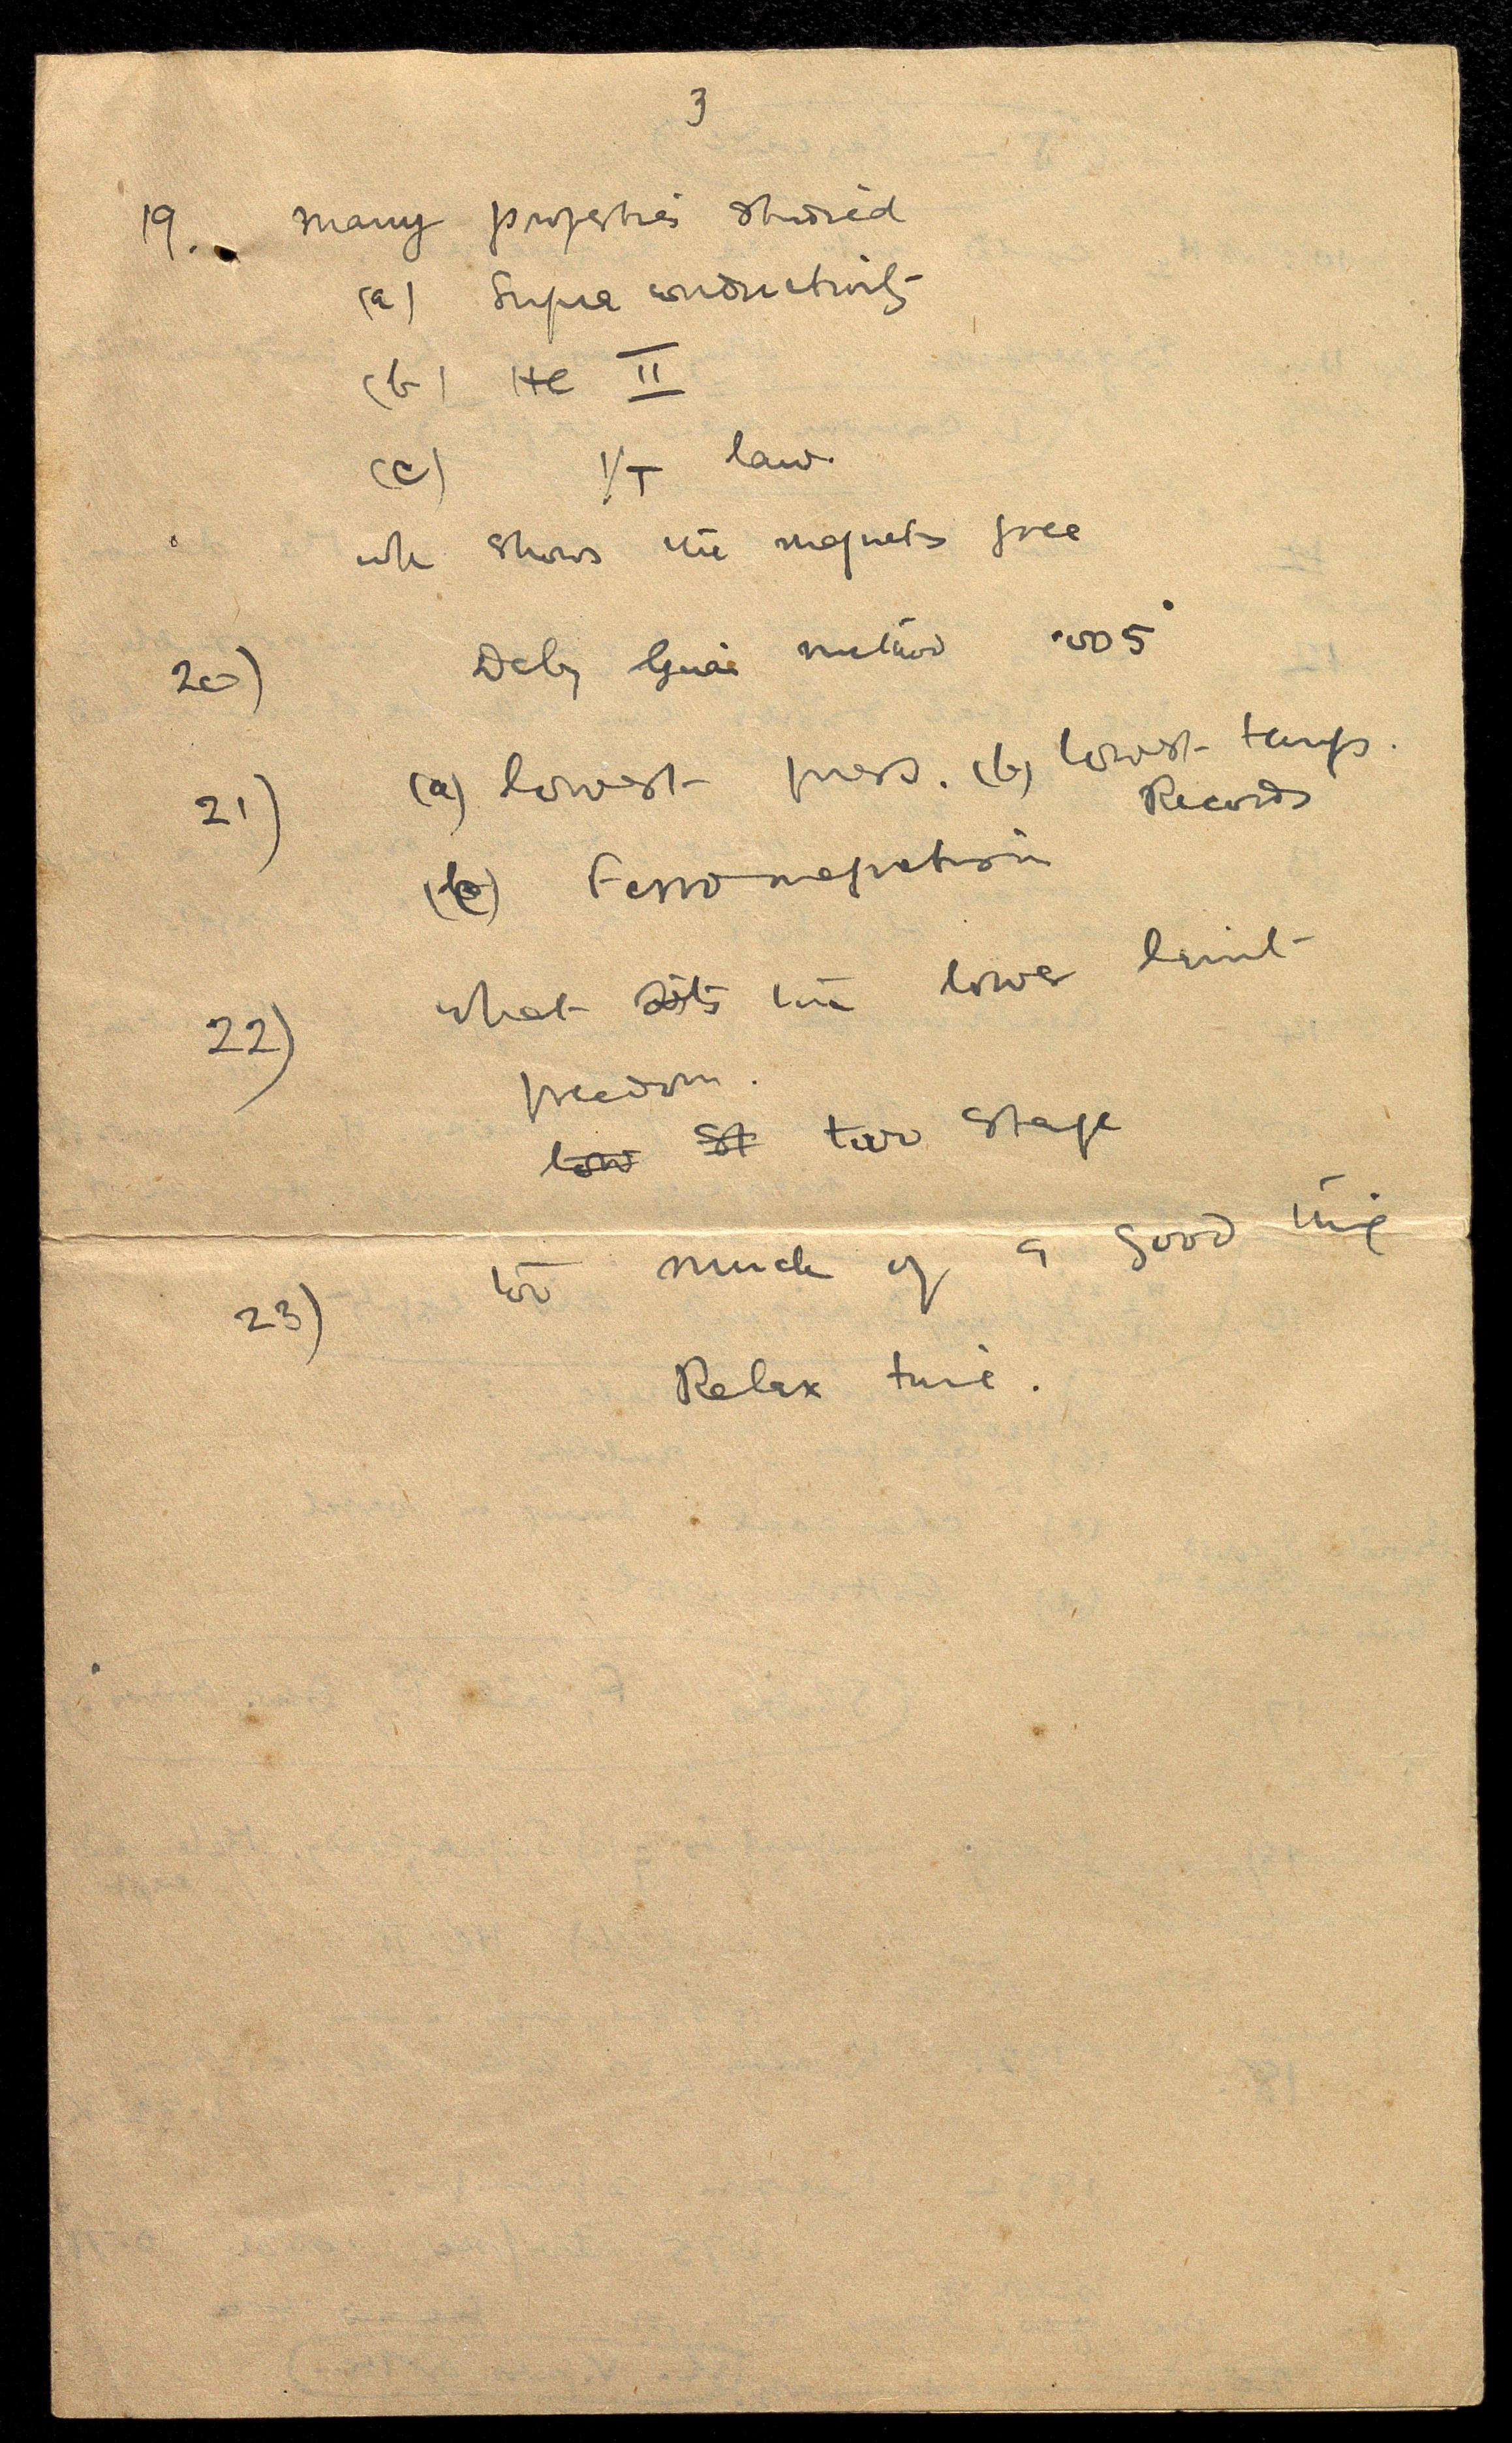 3
19. many properties studied
(a) Supra conductivity
(b) He II
(c) 1/T law.
wh shows the magnets free
20) Deby Giau method .005°
21) (a) lowest press. (b) lowest temps.
Records
(c) Ferromagnetism
22) what sets the lower limit
freedom.
low st two stage
23) too much of a good thing
Relax time.